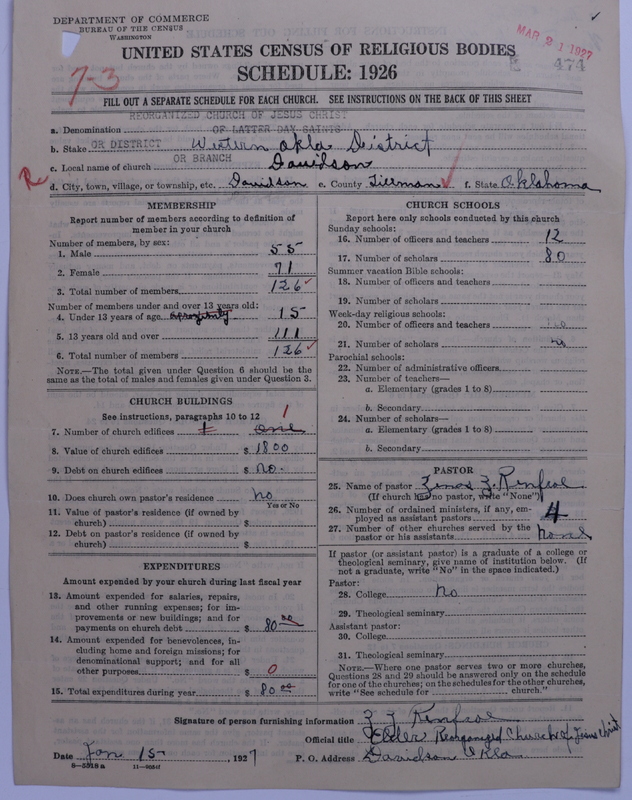 DEPARTMENT OF COMMERCE
BUREAU OF THE CENSUS
WASHINGTON
MAR 21 1927
474
7-3
UNITED STATES CENSUS OF RELIGIOUS BODIES
SCHEDULE: 1926
FILL OUT A SEPARATE SCHEDULE FOR EACH CHURCH. SEE INSTRUCTIONS ON THE BACK OF THIS SHEET
REORGANIZED CHURCH OF JESUS CHRIST
a. Denomination OF LATTER DAY SAINTS
b. Stake OR DISTRICT Western Okla District
c. Local name of church OR BRANCH Davidson
R d. City, town, village, or township, etc. Davidson e. County Tillman f. State Oklahoma
MEMBERSHIP
Report number of members according to definition of
member in your church
Number of members, by sex:
1. Male 55
2. Female 71
3. Total number of members 126
Number of members under and over 13 years old:
4. Under 13 years of age 15
5. 13 years old and over 111
6. Total number of members 126
NOTE.—The total given under Question 6 should be the
same as the total of males and females given under Question 3.
CHURCH BUILDINGS
See instructions, paragraphs 10 to 12
7. Number of church edifices 1 one 1
8. Value of church edifices $ 1800
9. Debt on church edifices $ no.
10. Does church own pastor's residence no
Yes or No
11. Value of pastor's residence (if owned by
church) $
12. Debt on pastor's residence (if owned by
church) $
EXPENDITURES
Amount expended by your church during last fiscal year
13. Amount expended for salaries, repairs,
and other running expenses; for im-
provements or new buildings; and for
payments on church debt $ 80 00
14. Amount expended for benevolences, in-
cluding home and foreign missions; for
denominational support; and for all
other purposes $ 0
15. Total expenditures during year $ 80 00
CHURCH SCHOOLS
Report here only schools conducted by this church
Sunday schools:
16. Number of officers and teachers 12
17. Number of scholars 80
Summer vacation Bible schools:
18. Number of officers and teachers
19. Number of scholars
Week-day religious schools:
20. Number of officers and teachers no
21. Number of scholars no
Parochial schools:
22. Number of administrative officers
23. Number of teachers—
a. Elementary (grades 1 to 8)
b. Secondary
24. Number of scholars—
a. Elementary (grades 1 to 8)
b. Secondary
PASTOR
25. Name of pastor Z. Renfroe
(If church has no pastor, write "None")
26. Number of ordained ministers, if any, em-
ployed as assistant pastors 4
27. Number of other churches served by the
pastor or his assistants none
If pastor (or assistant pastor) is a graduate of a college or
theological seminary, give name of institution below. (If
not a graduate, write "No" in the space indicated.)
Pastor:
28. College no
29. Theological seminary
Assistant pastor:
30. College
31. Theological seminary
NOTE.—Where one pastor serves two or more churches,
Questions 28 and 29 should be answered only on the schedule
for one of the churches; on the schedules for the other churches,
write "See schedule for church."
Signature of person furnishing information Z Z Renfroe
Official title Elder Reorganized Church of Jesus Christ
Date Jan 15, 1927 P. O. Address Davidson Okla
8—5318 a